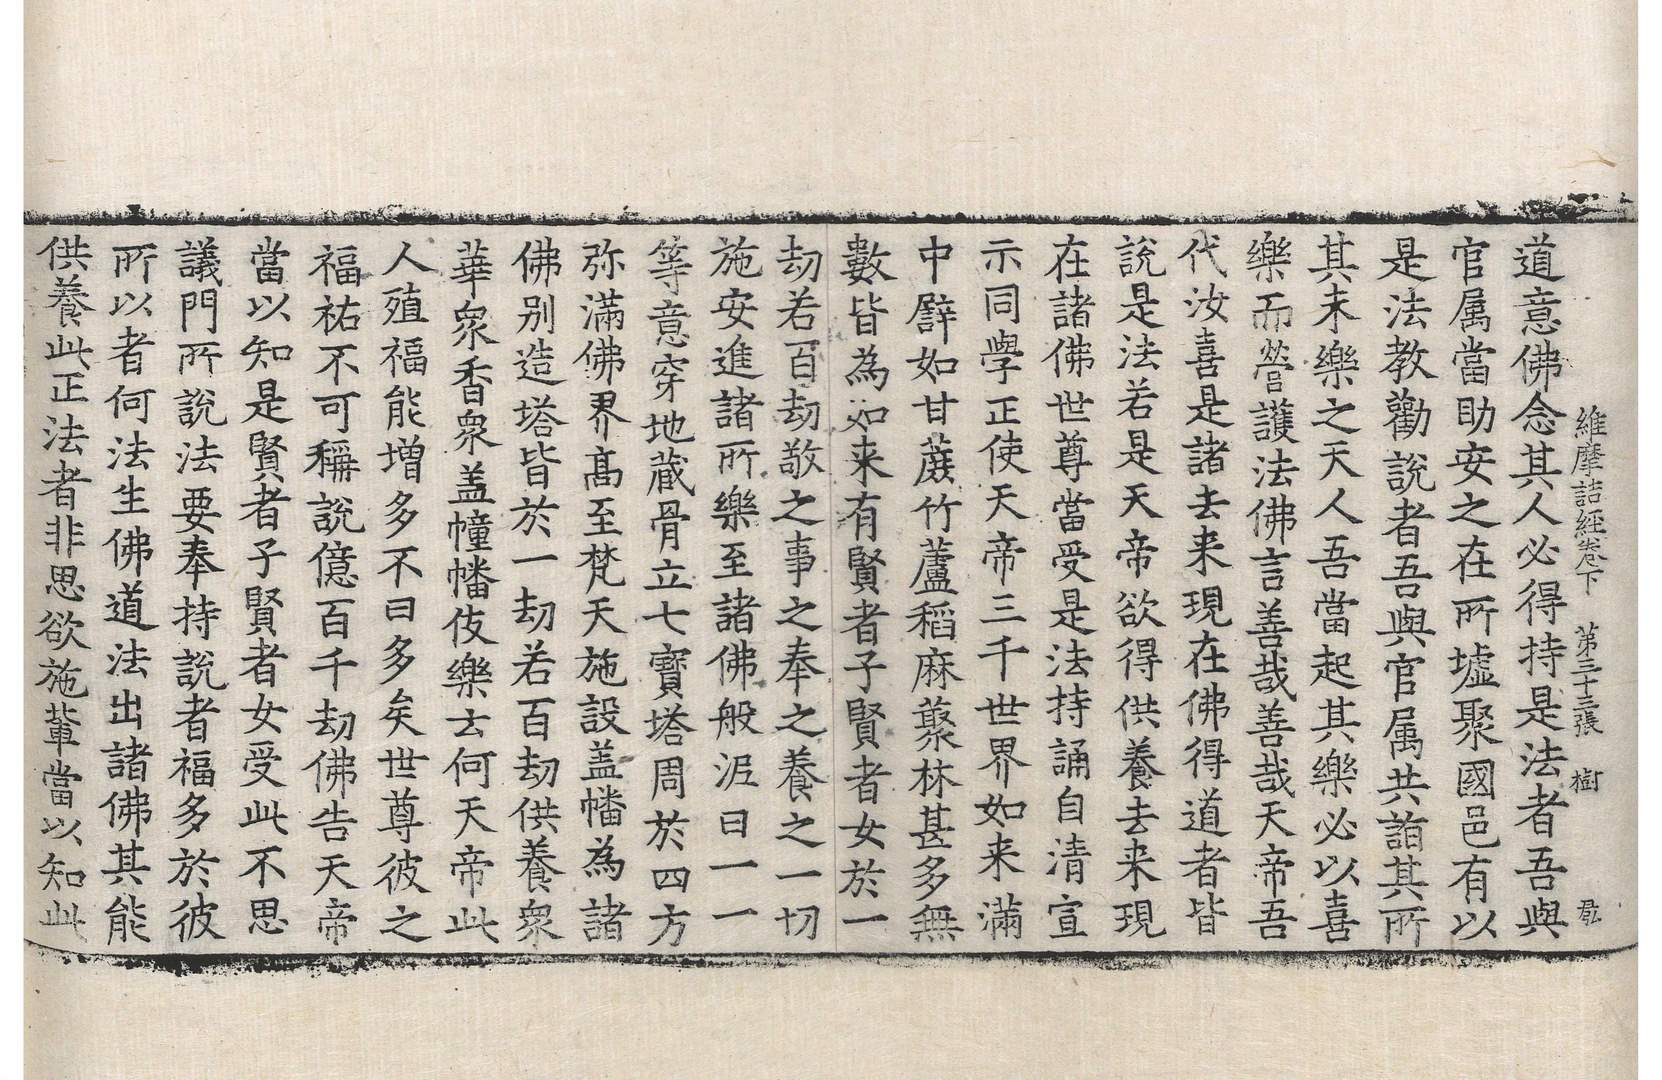 維摩詰經卷下 第三十三張 樹
道意佛念其人必得持是法者吾與
官属當助安之在所墟聚國邑有以
是法教勸說者吾與官属共詣其所
其未樂之天人吾當起其樂必以喜
樂而營護法佛言善哉善哉天帝吾
代汝喜是諸去来現在佛得道者皆
說是法若是天帝欲得供養去来現
在諸佛世尊當受是法持誦自清宣
示同學正使天帝三千世界如来滿
中譬如甘蔗竹蘆稻麻䕺林甚多無
數皆為如来有賢者子賢者女於一
劫若百劫敬之事之奉之養之一切
施安進諸所樂至諸佛般泥曰一一
等意穿地藏骨立七寶塔周於四方
弥滿佛界高至梵天施設盖幡為諸
佛别造塔皆於一劫若百劫供養衆
華衆香衆盖幢幡伎樂云何天帝此
人殖福能增多不曰多矣世尊彼之
福祐不可稱說億百千劫佛告天帝
當以知是賢者子賢者女受此不思
議門所說法要奉持說者福多於彼
所以者何法生佛道法出諸佛其能
供養此正法者非思欲施輩當以知此